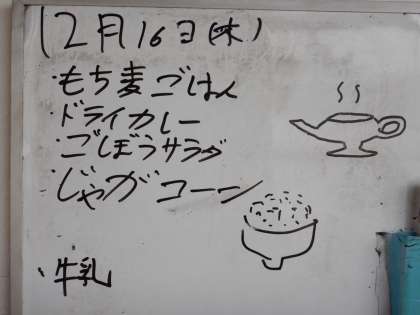 12月16日(木)
・もち麦ごはん
・ドライカレー
・ごぼうサラダ
・じゃがコーン
・牛乳